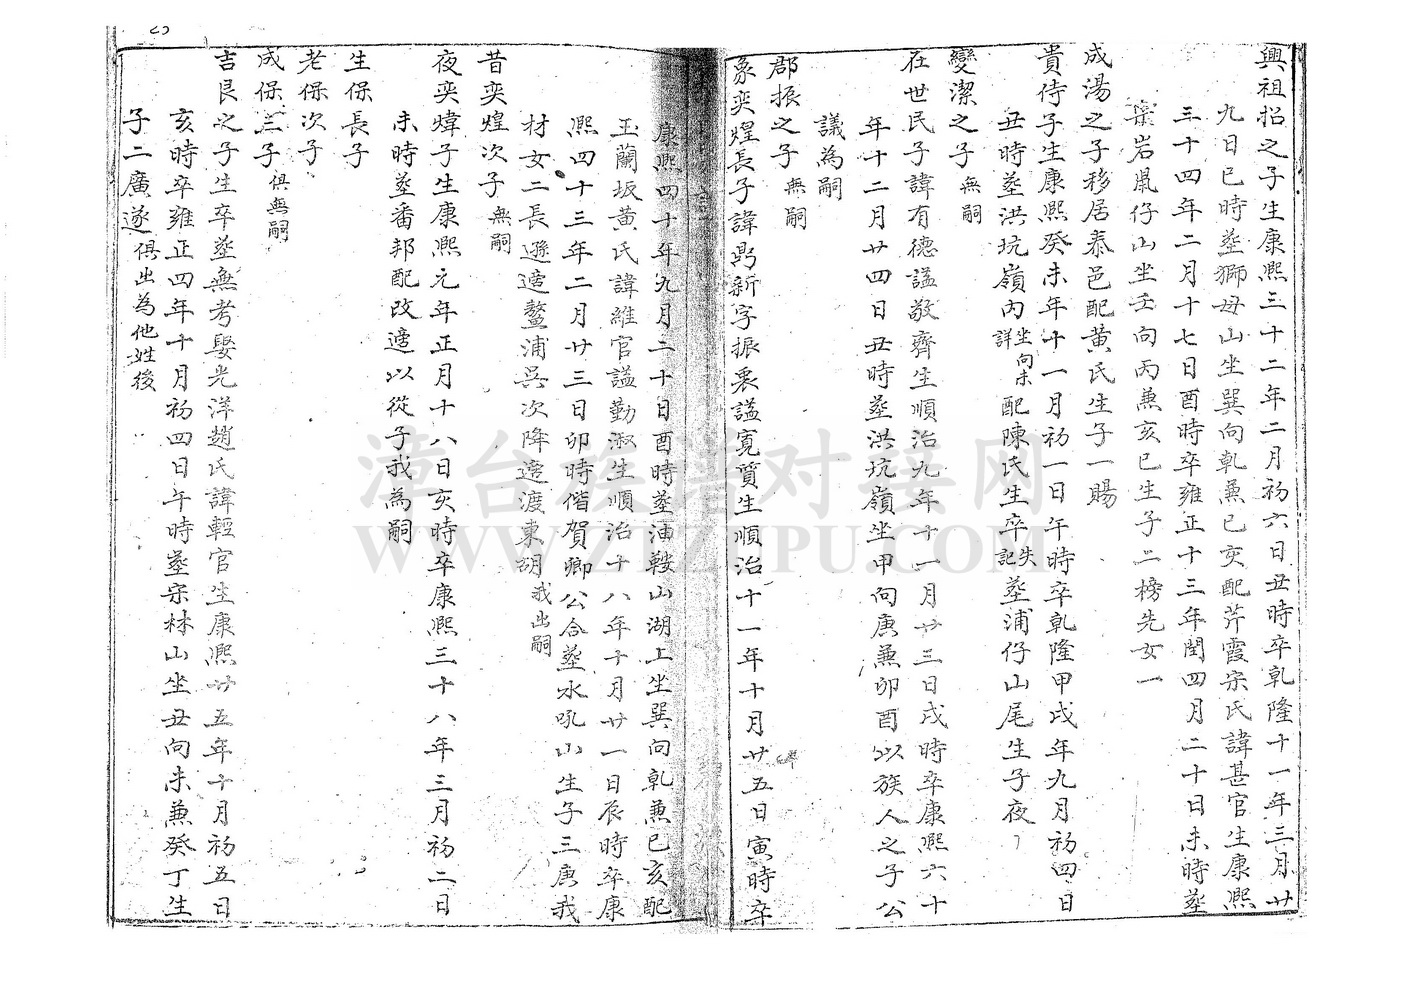 興祖招之子生康熙三十二年二月初六日丑時卒乾隆十一年三月廿
九日巳時塟獅母山坐巽向乾兼巳亥配芹霞宗氏諱甚官生康熙
三十四年二月十七日酉時卒雍正十三年閏四月二十日未時塟
岩鼡仔山坐壬向丙兼亥巳生子二榜先女一
成湯之子移居泰邑配黃氏生子一賜
貴侍子生康熙癸未年十一月初一日午時卒乾隆甲戌年九月初四日
丑時塟洪坑嶺內坐向未詳配陳氏生卒失記塟浦仔山尾生子夜
變潔之子無嗣
在世民子諱有德謚敬齊生順治九年十一月廿三日戌時卒康熙六十
年十二月廿四日丑時塟洪坑嶺坐甲向庚兼卯酉以族人之子公
議為嗣
郡振之子無嗣
象奕煌長子諱鼎新字振裹謚寬質生順治十一年十月廿五日寅時卒
康熙四十年九月二十日酉時塟油鞍山湖工坐巽向乾兼巳亥配
玉蘭坂黃氏諱維官謚勤淑生順治十八年十月廿一日辰時卒康
熙四十三年二月廿三日卯時偕賀卿公合塟水吼山生子三庚我
材女二長遜適鰲浦吳次降適渡東胡我出嗣
昔奕煌次子無嗣
夜奕煒子生康熙元年正月十八日亥時卒康熙三十八年三月初二日
未時塟番邦配改適以從子我為嗣
生保長子
老保次子
成保三子俱無嗣
吉艮之子生卒塟無考娶光洋趙氏諱輕官生康熙廿五年十月初五日
亥時卒雍正四年十月初四日午時塟宗林山坐丑向未兼癸丁生
子二廣遂俱出為他姓後
漳台族谱对接网
WWW.ZTZUPU.COM